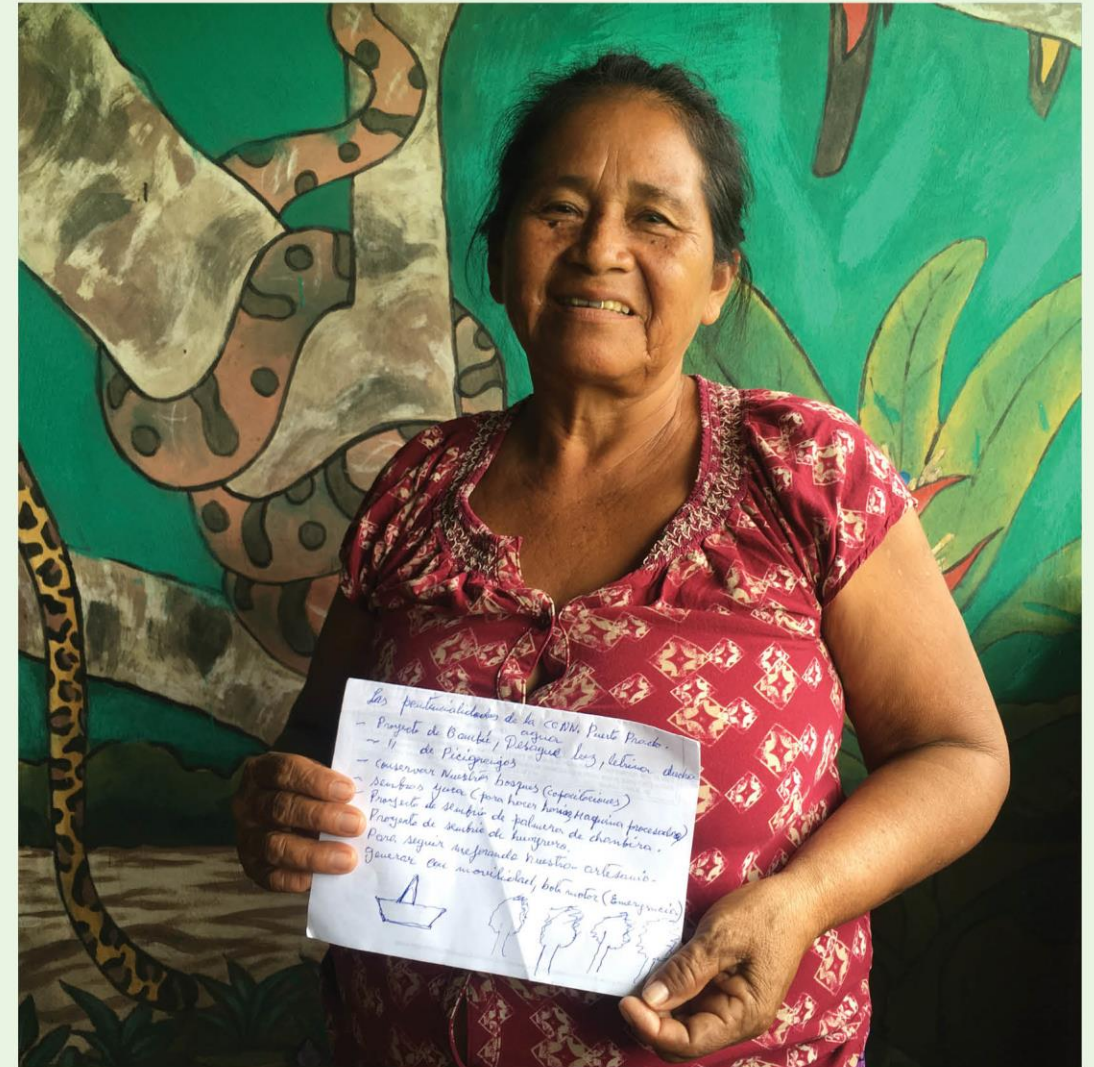 Las potencialidades de la CCNN. Puerto Prado.
agua
- Proyecto de Bambú, Desague luz, letrina ducha
- " de Picigranjas
- Conservar Nuestros bosques (capacitaciones)
- sembrar yuca (para hacer Maquina procesadora)
Proyecto de sembrio de palmeras de chambira.
Proyecto de sembrio de huayruro.
Para seguir mejorando nuestra artesania.
generar movilidad, bote motor (Emergencia)